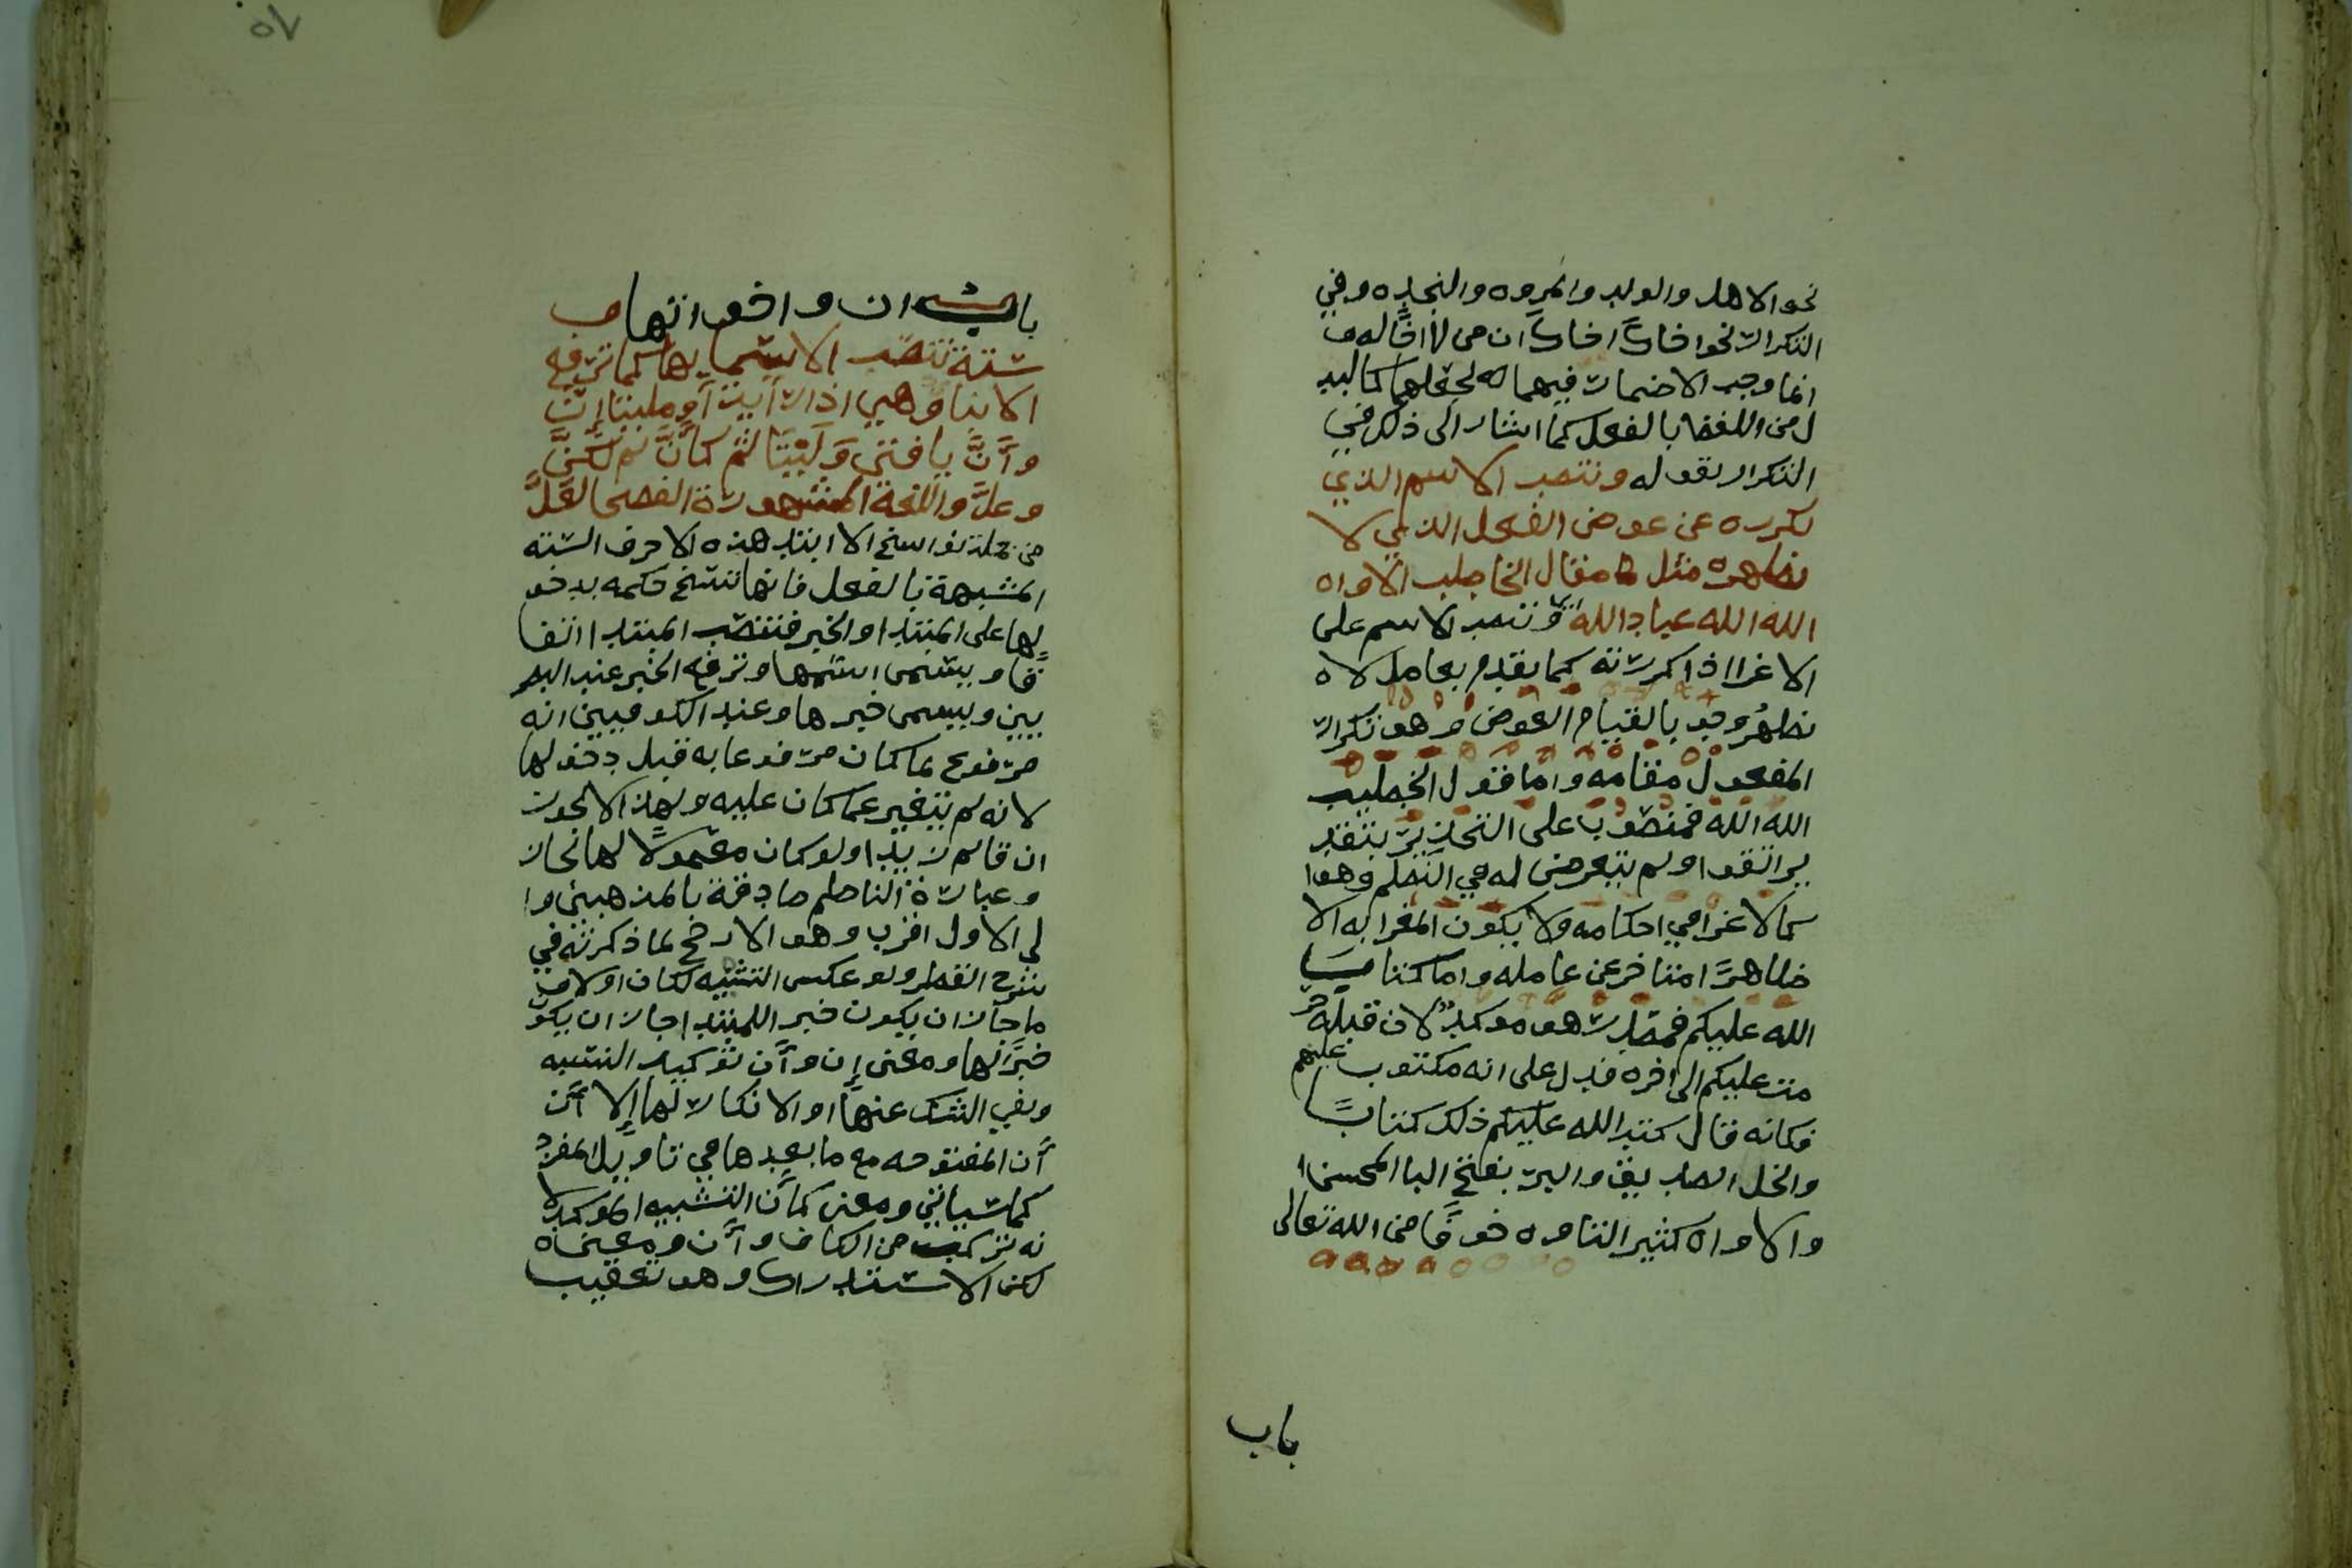 نحو الاهل والولد والمروه والنجده وفي
التكرار نحو اخاك اخاك ان من لا اخا له و
انما وجب الاضمار فيهما لجعلهما كالبد
ل من اللفظ بالفعل كما اشار الى ذلك في
التكرار بقوله وتنصب الاسم الذي
تكرره عن عوض الفعل الذي لا
تظهره مثل مقال الخاطب الاواه
الله الله عباد الله اي وتنصب الاسم على
الاغرا اذا كررته كما تقدم بعامل لا
تظهر وجوبا لقيام العوض وهو تكرار
المفعول مقامه واما قول الخطيب
الله الله فمنصوب على التحذير بتقد
ير اتقوا ولم يتعرض له في النظم وهو ا
كالاغرا في احكامه ولا يكون المغرا به الا
ظاهرًا متاخر عن عامله واما كتاب
الله عليكم فمصدر هو موكد لان قبله حر
مت عليكم الى اخره فدل على انه مكتوب عليهم
فكانه قال كتب الله عليكم ذلك كتابًا
والخل الصديق والبر بفتح البا المحسن
والاواه كثير التاوه خوفًا من الله تعالى
باب
٥٧
باب ان واخواتها و
ستة تنتصب الاسما بها كما ترتفع
الانبا وهي اذا رأيت أو مليتا إنَّ
وأنَّ يا فتى وَلَيْتَا ثم كأنَّ ثم لكنَّ
وعلَّ واللغة المشهورة الفصحى لعلَّ
من جملة نواسخ الابتدا هذه الاحرف الستة
المشبهة بالفعل فانها تنسخ حكمه بدخو
لها على المبتدا والخبر فتنصب المبتدا اتفا
قًا ويسمى اسمها وترفع الخبر عند البصر
يين ويسمى خبرها وعند الكوفيين انه
مرفوع بما كان مرفوعا به قبل دخولها
لانه لم يتغير عما كان عليه ولهذا لا يجوز
ان قايم زيدا ولو كان معمولًا لها لجاز
وعبارة الناظم صادقة بالمذهبين وا
لى الاول اقرب وهو الارجح لما ذكرته في
شرح القطر ولو عكس التشبيه لكان اولى و
ما جاز ان يكون خبر اللمبتدا جاز ان يكون
خبرًا لها ومعنى إن وأَن توكيد النسبه
ونفي الشك عنها والانكار لها إلا أن
أَن المفتوحه مع ما بعدها في تاويل المفرد
كما سياتي ومعنى كأَن التشبيه الموكد لا
نه تركب من الكاف وأَن ومعنى
لكن الاستدراك وهو تعقيب